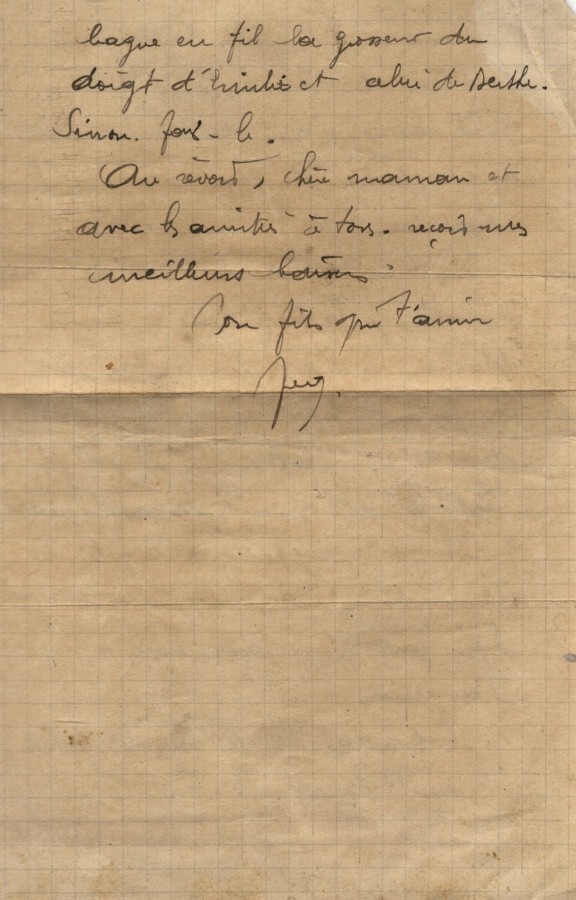 bague en fil la grosseur du
doigt d' et celui de Berthe.
Sinon. fais-le.
Au revoir, chère maman et
avec les amitiés à tous. reçois mes
meilleurs baisers.
Ton fils qui t'aime